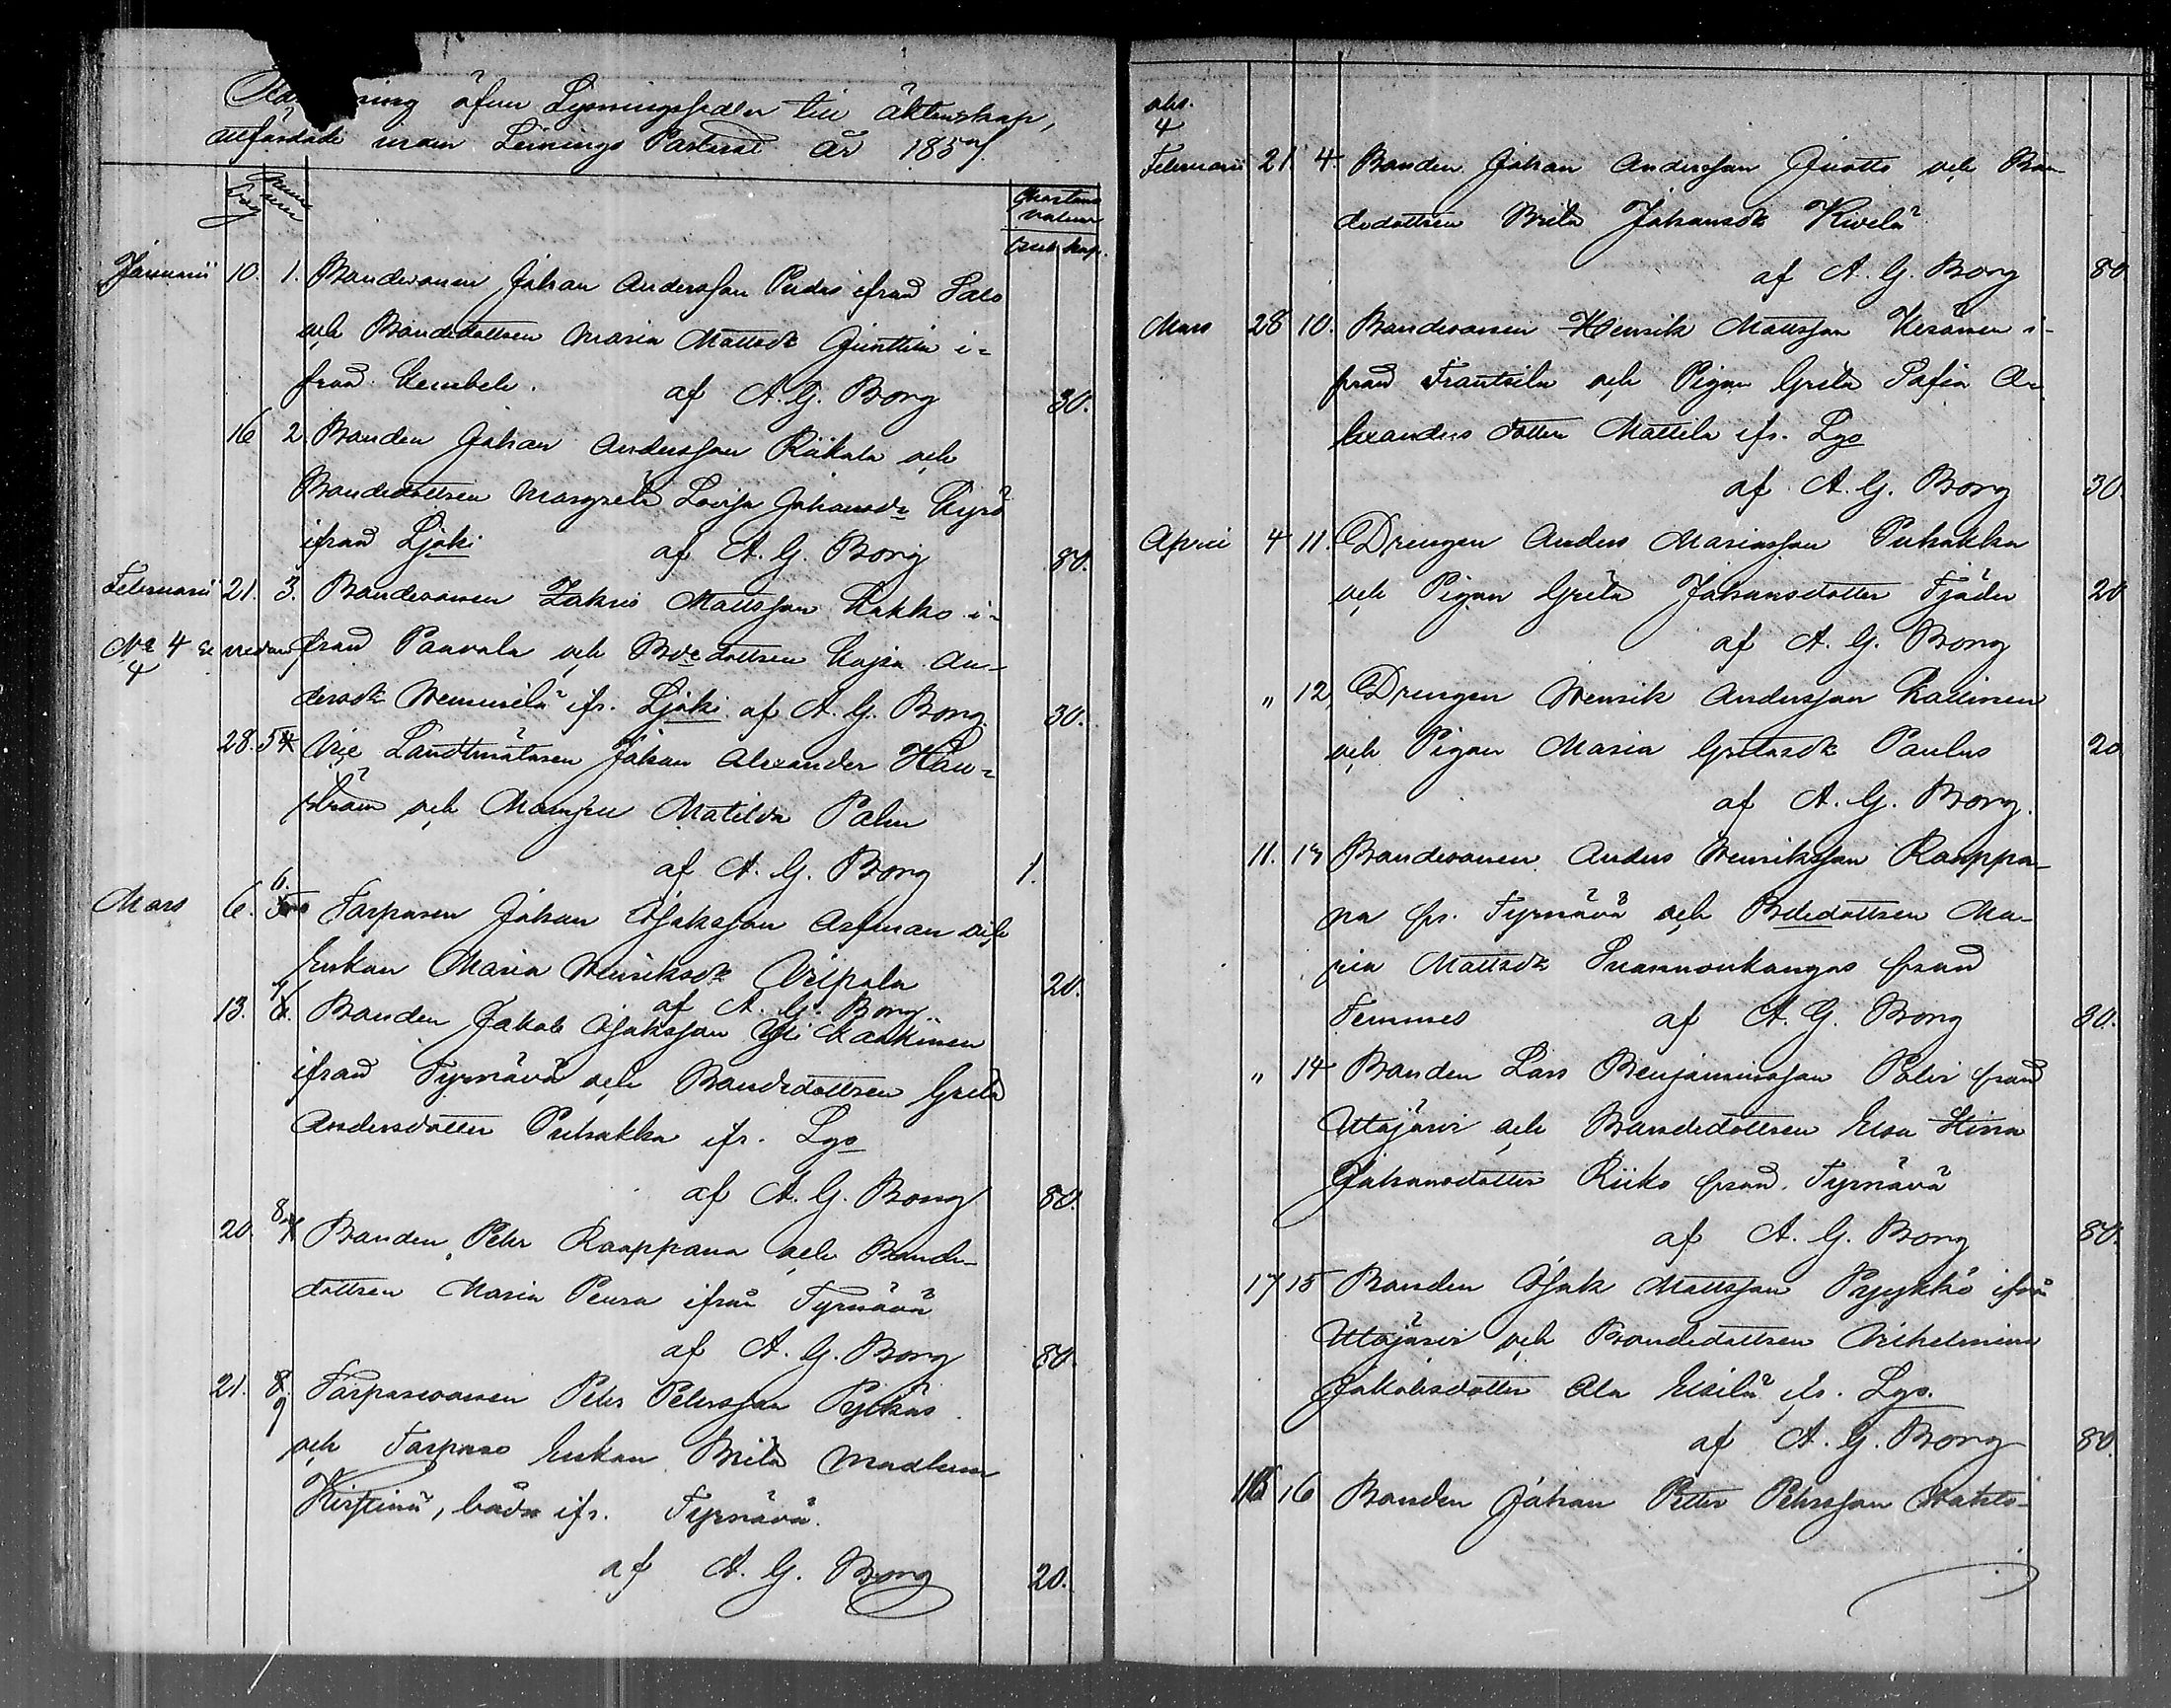 öfver Lysningssedlar till äktenskap,
utfärdade inom Limingo Pastorat år 1857.
Dag Numer
Chartans valeur
Rub. kop.
Januarii 10. 1. Bondesonen Johan Andersson Pudas ifrån Salo
och Bondedottren Maria Mattsdr Junttila i-
från Kembele. af A. G. Borg 30.
16 2. Bonden Johan Andersson Riikola och
Bondedottren Margreta Lovisa Johansdr Kyrö
ifrån Ljoki af A. G. Borg 80.
Februarii 21. 3. Bondesonen Zakris Mattsson Kakko i-
No 4 se nedan från Paavola och Bdedottren Kajsa An-
4
dersdr Wennilä ifr. Ljoki af A. G. Borg 30.
28. 5 4 Vice Landtmätaren Johan Alexander Hav-
ström och Mamsell Matilda Palm
af A. G. Borg 1.
6.
Mars 6. 5 Torparen Johan Isaksson Asfman och
Enkan Maria Henriksdr Vilpola 20.
af A. G. Borg
7
13. 6. Bonden Jakob Isaksson Yli Kaakinen
ifrån Tyrnävä och Bondedottren Greta
Andersdotter Puhakka ifr. Lgo
af A. G. Borg 80.
8
20. 7 Bonden Petr Raappana och Bonde-
dottren Maria Peura ifrån Tyrnävä
af A. G. Borg 80.
21. 8. Torparesonen Petr Petersson Pyläs
9
och Torpare Enkan Brita Madlena
Kirstinä, både ifr. Tyrnävä.
af A. G. Borg 20.
obs.
4
Februarii 21. 4. Bonden Johan Andersson Juotto och Bon-
dedottren Brita Johansdr Kivelä
af A. G. Borg 80
Mars 28 10. Bondesonen Henrik Mattsson Keränen i-
från Frantsila och Pigan Greta Sofia A-
lexanders dotter Mattila ifr. Lgo
af A. G. Borg 30
April 4 11. Drengen Anders Mariasson Puhakka
och Pigan Greta Johansdotter Fjäder 20
af A. G. Borg
" 12 Drengen Henrik Andersson Kallinen
och Pigan Maria Gretasdr Paulus 20
af A. G. Borg.
11. 13 Bondesonen Anders Henriksson Raappa-
na fr. Tyrnävä och Bdedottren Ma-
ria Mattsdr Suannonkangas från
Temmes af A. G. Borg 30.
" 14 Bonden Lars Benjaminsson Palv från
Utajärvi och Bondedottren Elsa Stina
Johansdotter Riiko från Tyrnävä
af A. G. Borg 80.
17 15 Bonden Isak Mattsson Pyykkö ifrån
Utajärvi och Bondedottren Vilhelmina
Jakobsdotter Ala Eskilä ifr. Lgo.
af A. G. Borg 80
16 Bonden Johan Petter Petersson Wahto-